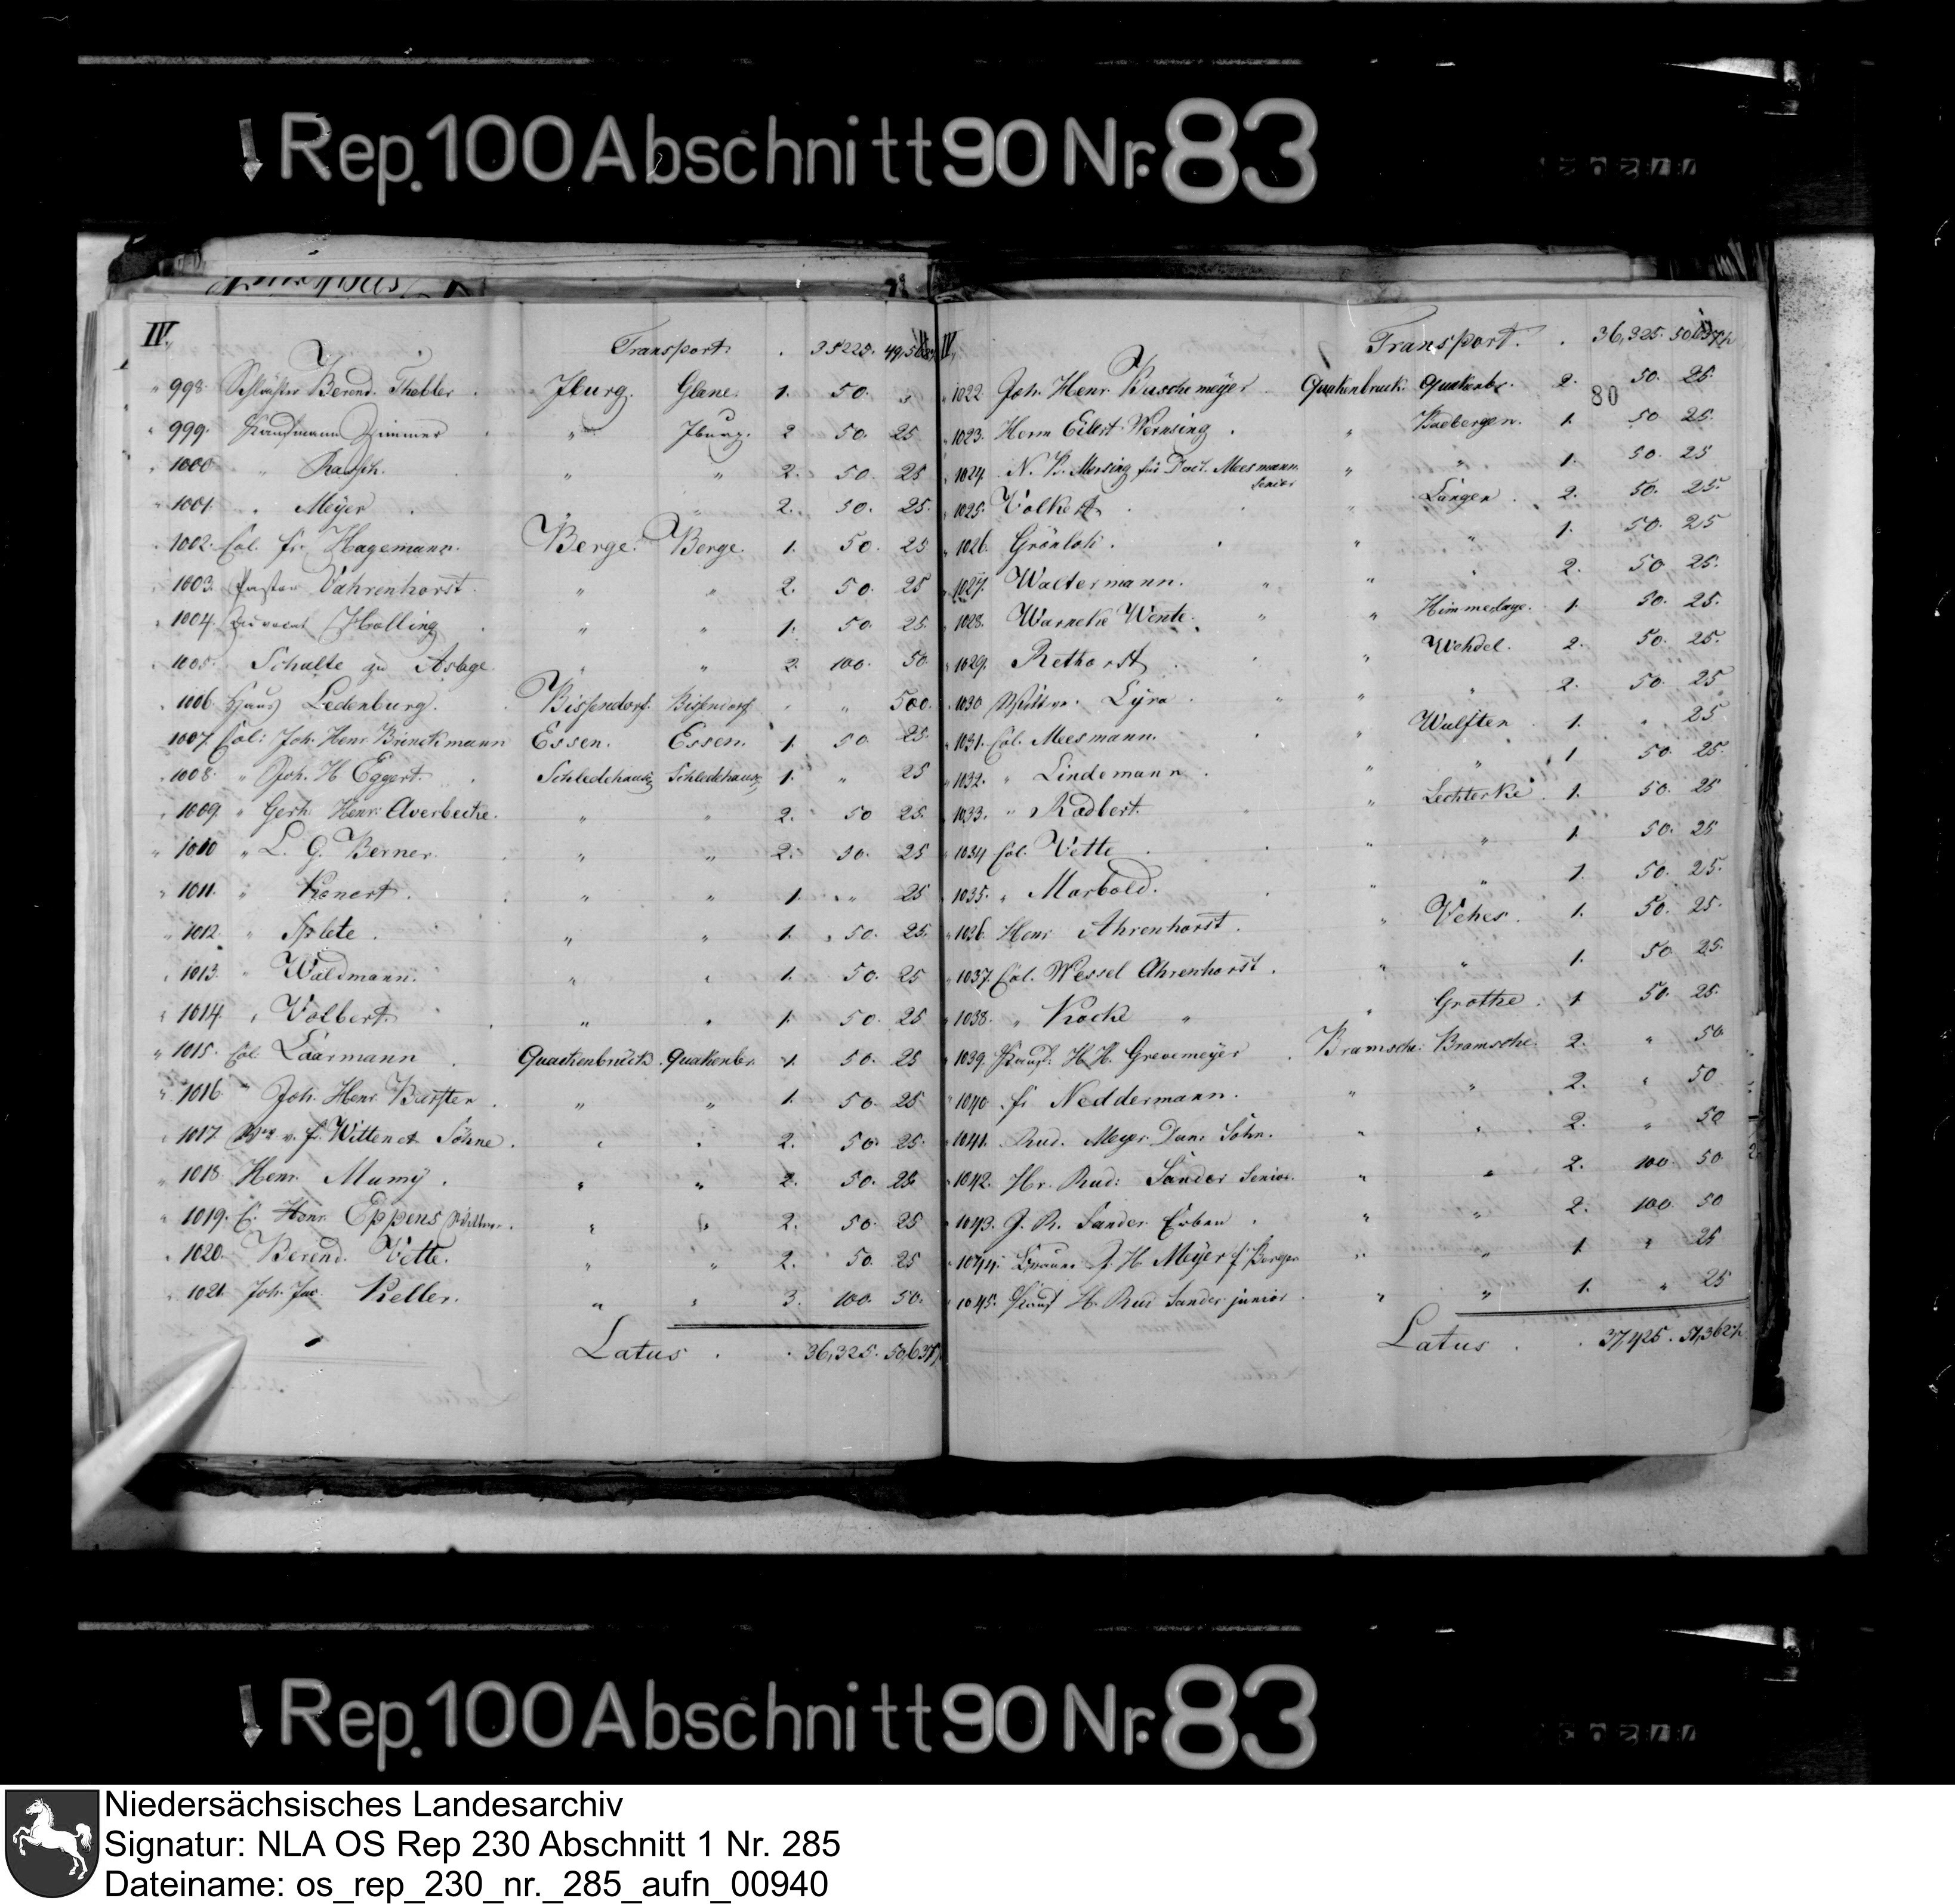 Rep. 100 Abschnitt 90 Nr. 83
IV.
Transport . 35225.
" 998. Berend. Thebbe Iburg. Glane. 1. 50. "
" 999. Kaufmann Zimmer " Iburg. 2 50. 25
" 1000 " Rausch. " " 2. 50. 25
" 1001. " Meyer . " 2. 50. 25.
" 1002. Col. fr. Hagemann. Berge. Berge. 1. 50. 25
" 1003. Pastor Vahrenhorst " " 2. 50. 25
" 1004. Advocat Holling " " 1. 50. 25.
" 1005. Schulte zu Aslage " " 2. 100. 50.
" 1006. Haus Ledenburg. Bissendorf. Bissendorf " " 500.
" 1007. Col: Joh. Henr. Brinckmann Essen. Essen. 1. 50. 25.
" 1008. " Joh. H. Eggert. Schledehausen Schledehausen 1. " 25
" 1009. " Gerh. Henr. Averbecke. " " 2. 50 25.
" 1010 " L. G. Berner. " " 2. 50. 25
" 1011. " Konert. " " 1. " 25
" 1012. " Splete . " " 1. 50. 25.
" 1013. " Waldmann. " " 1. 50. 25
" 1014 " Volbert. " " 1. 50. 25
" 1015. Col. Laarmann Quackenbrück. Quakenbr. 1. 50. 25
" 1016. " Joh. Henr. Barften . " " 1. 50. 25
" 1017. v. f. Witten et Söhne . " " 2. 50. 25.
" 1018. Henr. Mumy . " " 2. 50. 25.
" 1019. C. Henr. Eppens Wittwe. " " 2. 50. 25
" 1020. Berend. Vette. " " 2. 50. 25
" 1021. Joh. Jac. Keller. " " 3. 100. 50.
Latus . . 36,325.
IV.
Transport. . 36,325.
80
" 1022. Joh. Henr. Buschemeyer Quakenbruck. Quakenbr. 2. 50. 25.
" 1023. Herm Eilert Wernsing . " Badbergen. 1. 50 25.
" 1024. N. B. Mersing für Doct. Meesmann " " 1. 50. 25
senior
" 1025. Volkert . " Langen . 2. 50. 25.
" 1026. Grönloh . " " 1. 50. 25
" 1027. Waltermann. " " " 2. 50 25.
" 1028. Warneke Wente. " " Himmelage. 1. 50. 25.
" 1029. Rethorst . " " Wehdel. 2. 50. 25.
" 1030 Wittwe. Lyra . " " " 2. 50. 25
" 1031. Col. Meesmann. " " Wulften 1. " 25
" 1032. " Lindemann . " " 1 50. 25.
" 1033. " Radbert. " Lechterke . 1. 50. 25
" 1034 Col. Vette . " " 1. 50. 25
" 1035. " Marbold. " " 1. 50. 25.
" 1036. Henr. Ahrenhorst . " Vehes . 1. 50. 25.
" 1037. Col. Wessel Ahrenhorst . " " 1. 50 25.
" 1038. " Kocke " " Grothe . 1. 50. 25.
" 1039. Kauf. H. H. Grevemeyer . Bramsche. Bramsche. 2. " 50
" 1040. fr. Neddermann. " " 2. " 50
" 1041. Rud. Meyer Dan. Sohn. " " 2. " 50
" 1042. Hr. Rud: Sander Senior. " " 2. 100. 50
" 1043. J. R. Sander Erben . " " 2. 100. 50
" 1044. J. H. Meyer " " 1. " 25
" 1045. Kauf H. Rud Sander junior . " " 1. " 25
Latus . . 37,425.
Rep. 100 Abschnitt 90 Nr. 83
Niedersächsisches Landesarchiv
Signatur: NLA OS Rep 230 Abschnitt 1 Nr. 285
Dateiname: os_rep_230_nr._285_aufn_00940